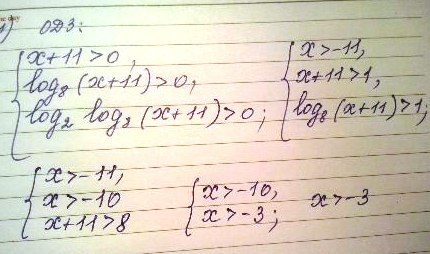 1) ОДЗ:
x+11>0,
log₈(x+11)>0,
log₂ log₈(x+11)>0;
x>-11,
x+11>1,
log₈(x+11)>1;
x>-11,
x>-10
x+11>8
x>-10,
x>-3;
x>-3